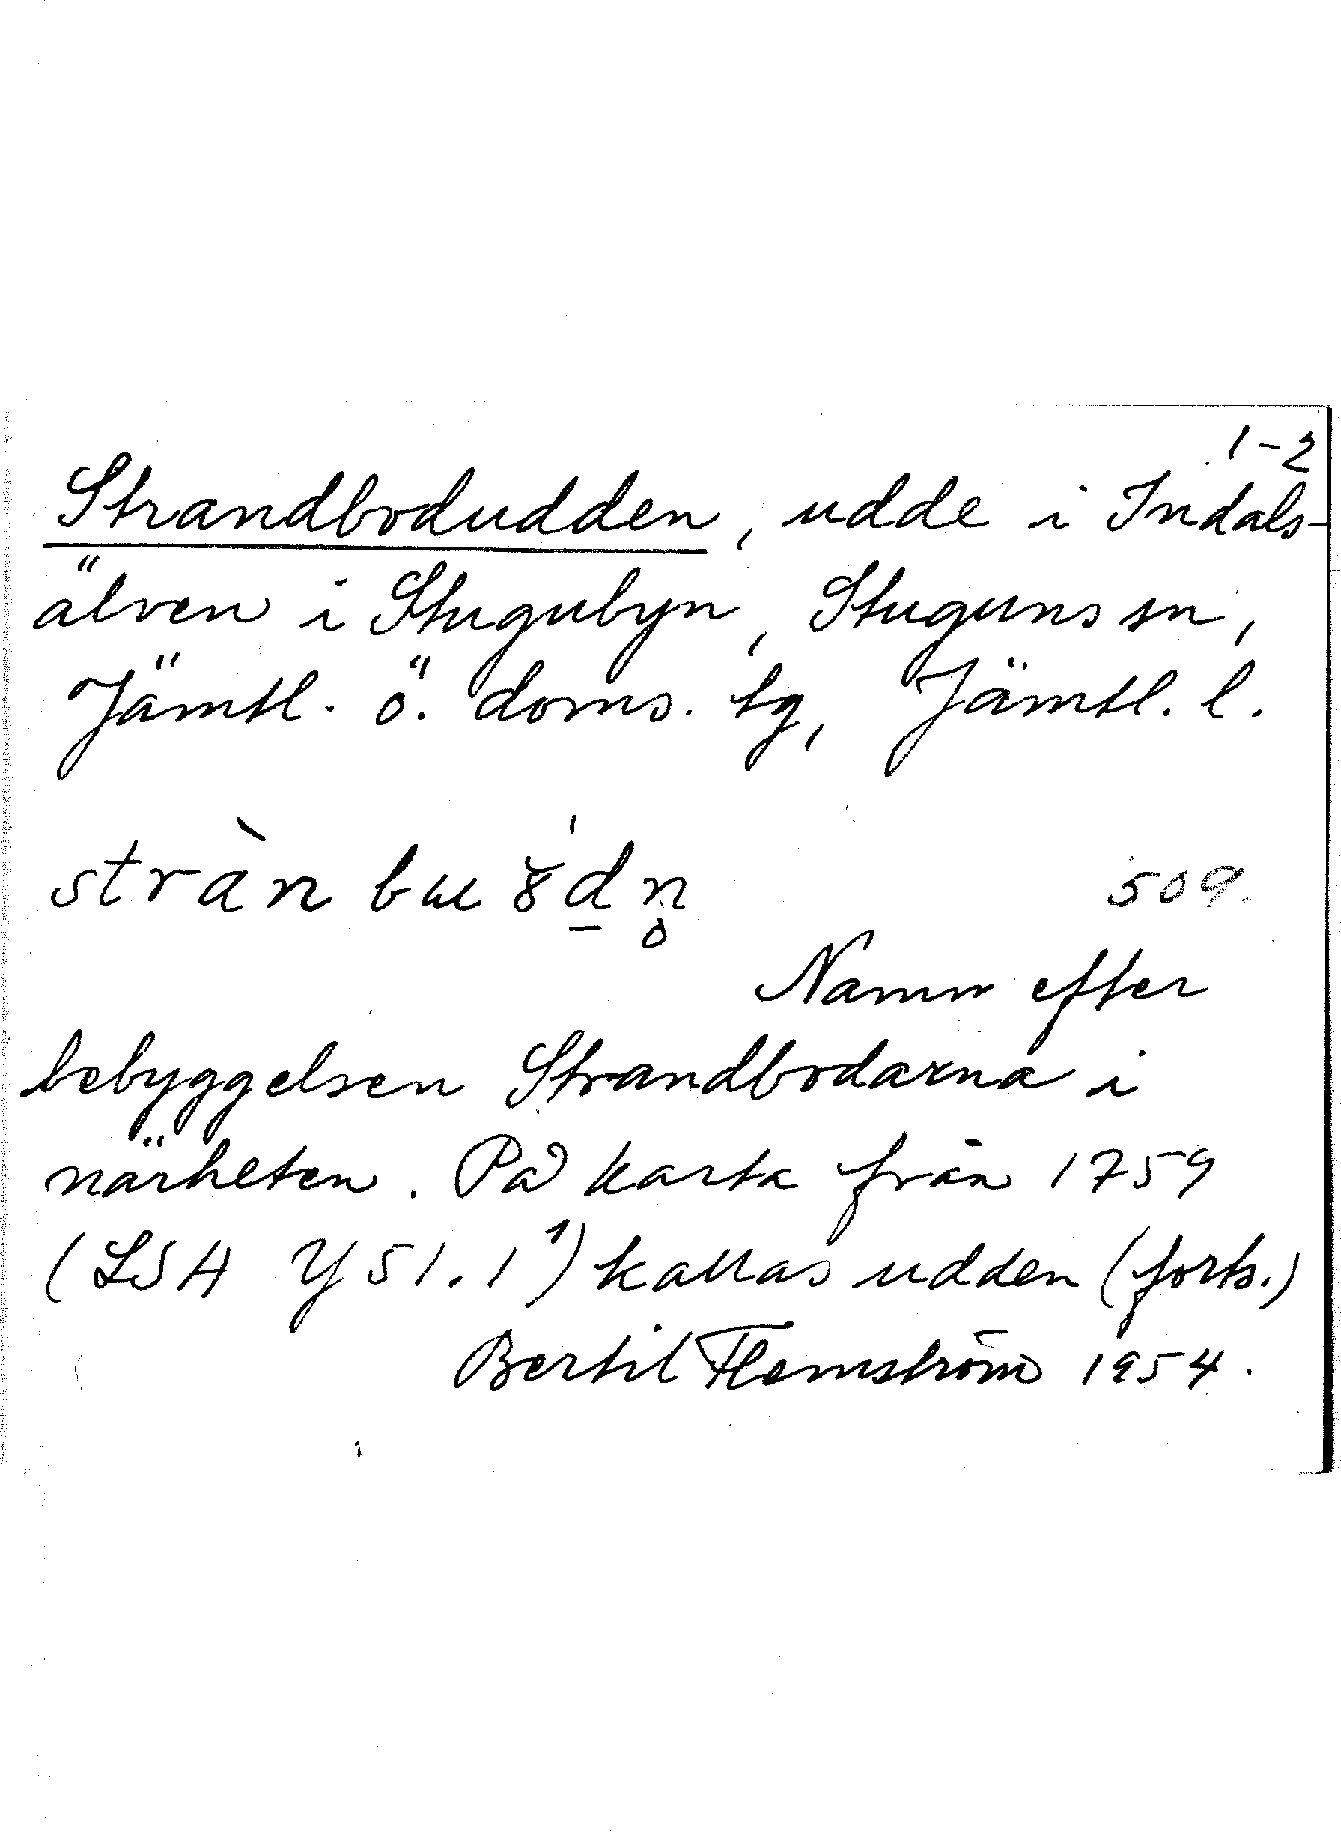 1-2
Strandbodudden, udde i Indals-
älven i Stugubyn, Stuguns sn,
Jämtl. ö. doms. tg, Jämtl. l.
strànbu8́d̲n̥ 509.
Namn efter
bebyggelsen Strandbodarna i
närheten. På karta från 1759
(LSA Y 51. 1¹) kallas udden (forts.)
Bertil Flemström 1954.